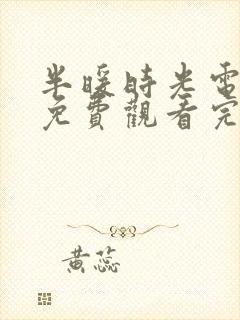 半暖時光電
免費觀看完
黃蕊